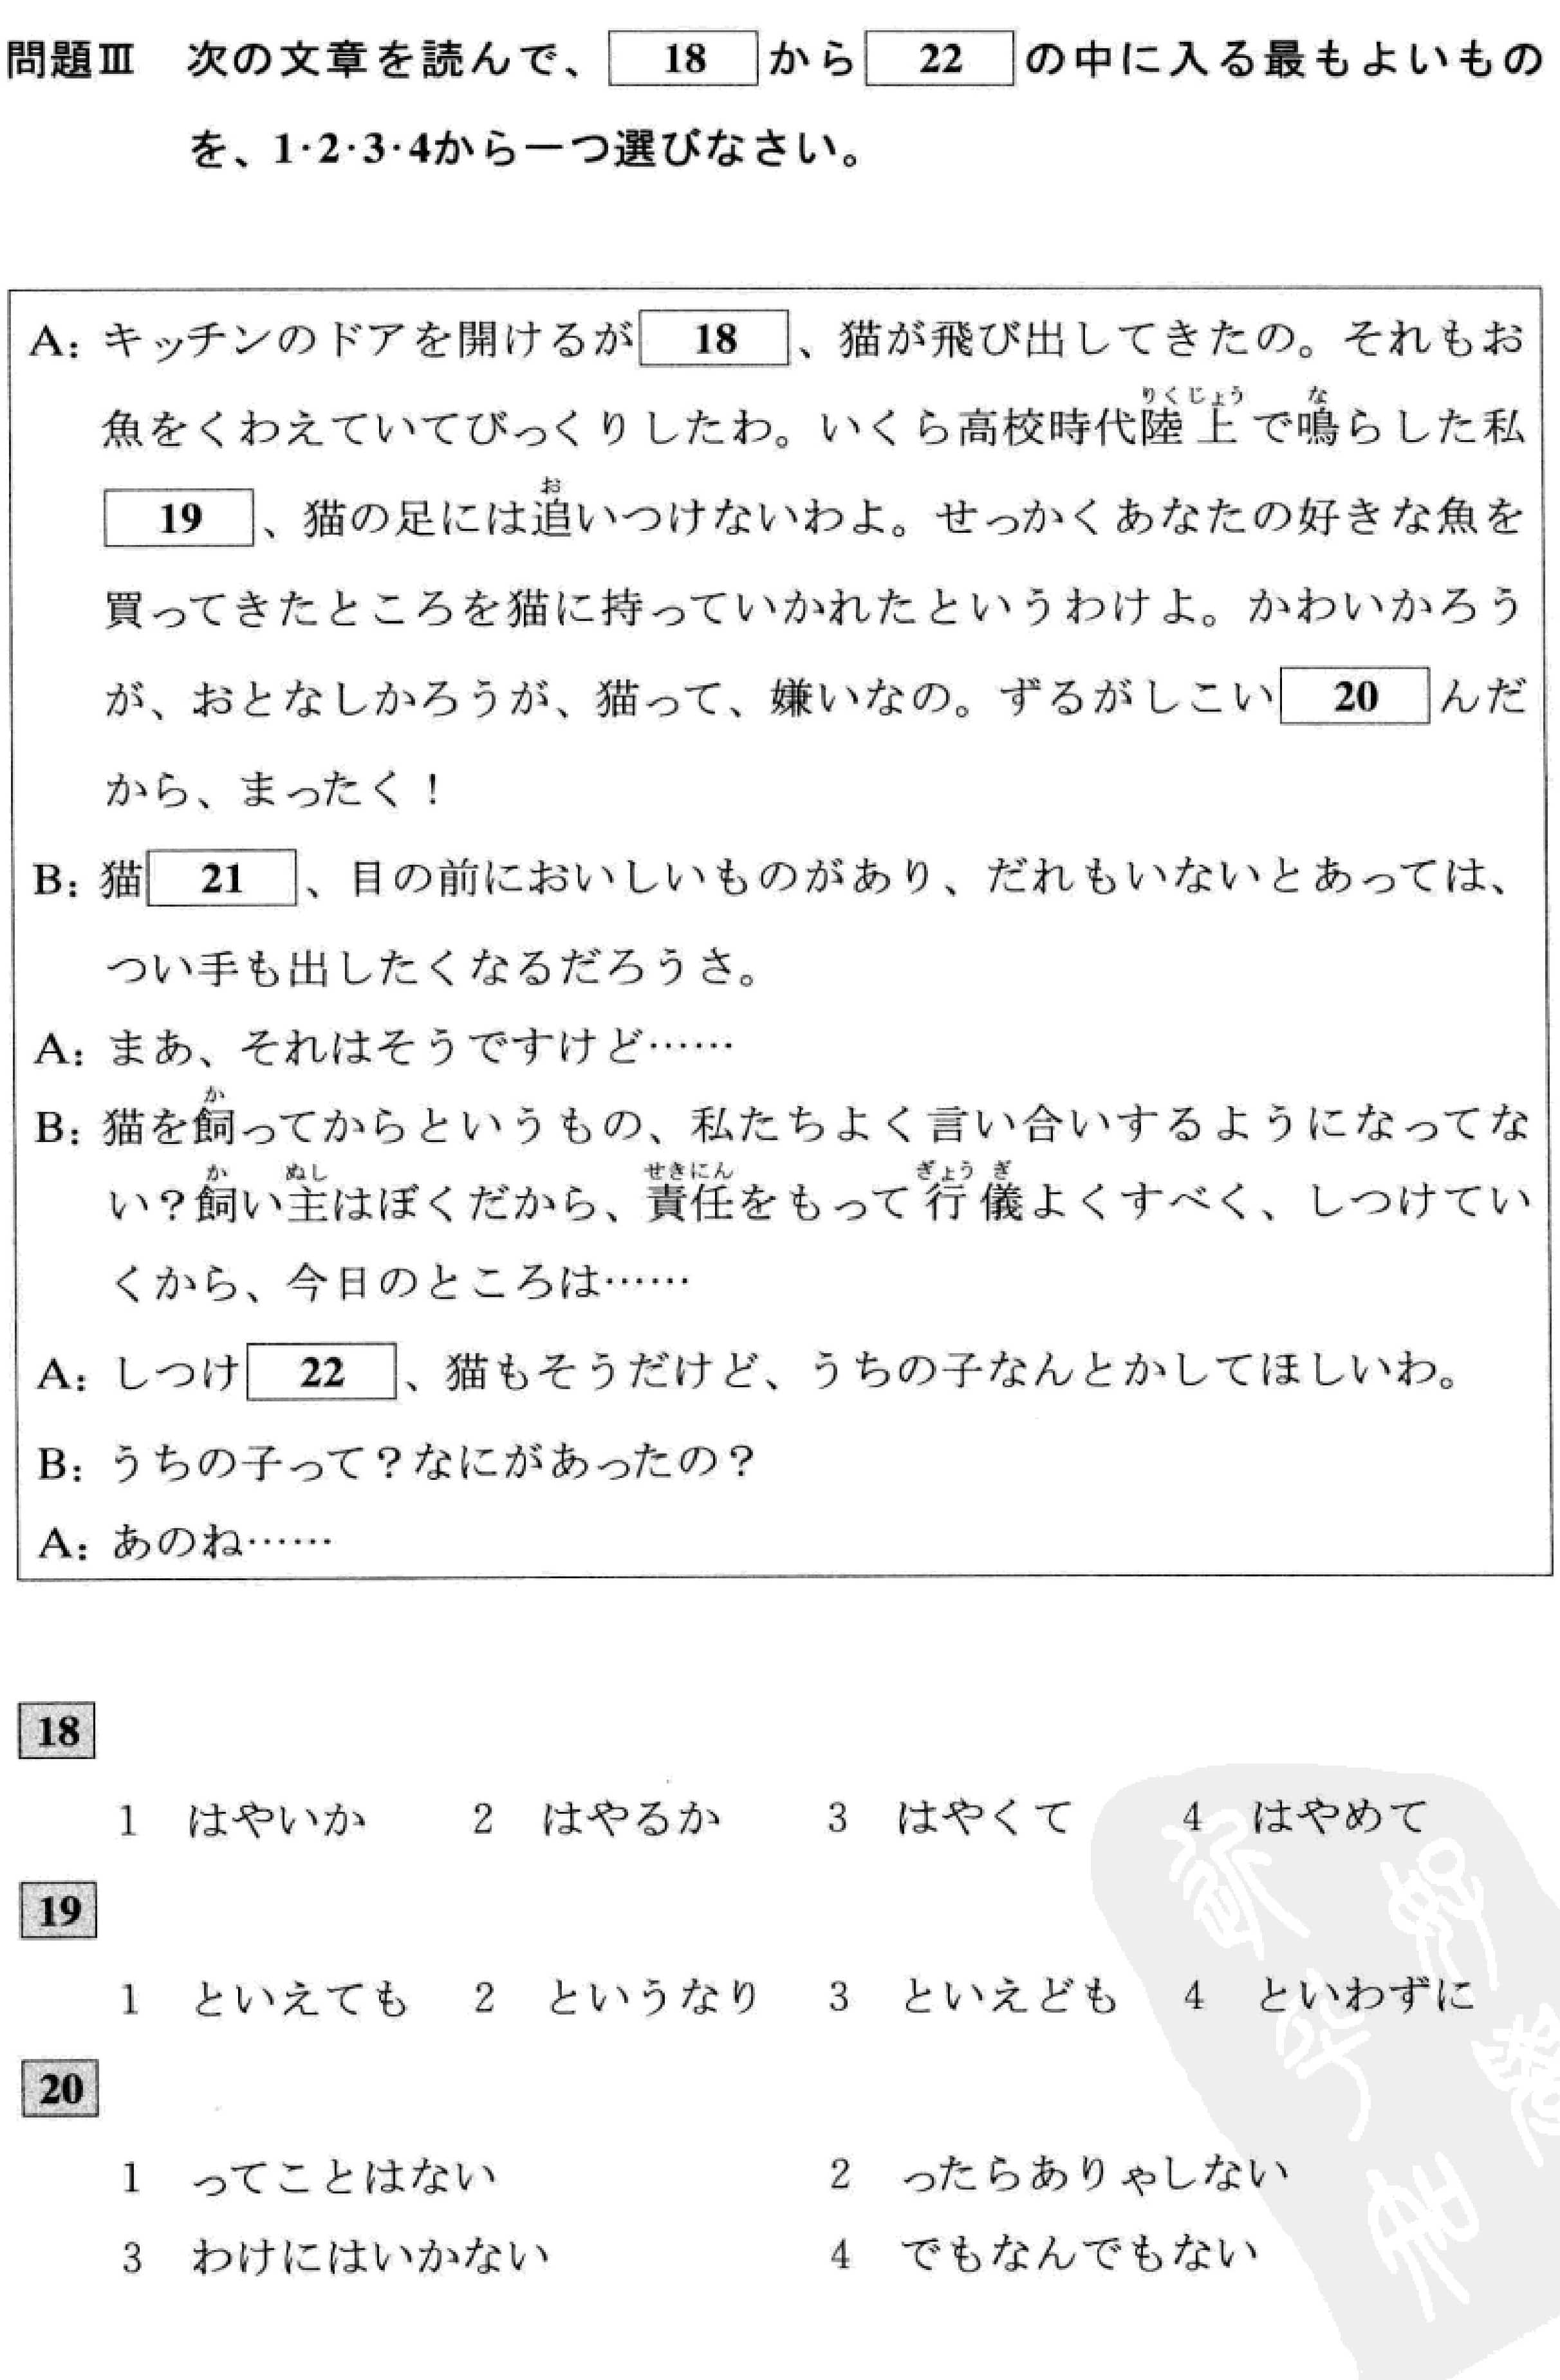 問題Ⅲ 次の文章を読んで、 18 から 22 の中に入る最もよいもの
を、1·2·3·4から一つ選びなさい。
A: キッチンのドアを開けるが 18 、猫が飛び出してきたの。それもお
りくじょう な
魚をくわえていてびっくりしたわ。いくら高校時代陸上で鳴らした私
お
19 、猫の足には追いつけないわよ。せっかくあなたの好きな魚を
買ってきたところを猫に持っていかれたというわけよ。かわいかろう
が、おとなしかろうが、猫って、嫌いなの。ずるがしこい 20 んだ
から、まったく！
B: 猫 21 、目の前においしいものがあり、だれもいないとあっては、
つい手も出したくなるだろうさ。
A: まあ、それはそうですけど……
か
B: 猫を飼ってからというもの、私たちよく言い合いするようになってな
か ぬし せきにん ぎょう ぎ
い？飼い主はぼくだから、責任をもって行儀よくすべく、しつけてい
くから、今日のところは……
A: しつけ 22 、猫もそうだけど、うちの子なんとかしてほしいわ。
B: うちの子って？なにがあったの？
A: あのね……
18
1 はやいか 2 はやるか 3 はやくて 4 はやめて
19
1 といえても 2 というなり 3 といえども 4 といわずに
20
1 ってことはない 2 ったらありゃしない
3 わけにはいかない 4 でもなんでもない